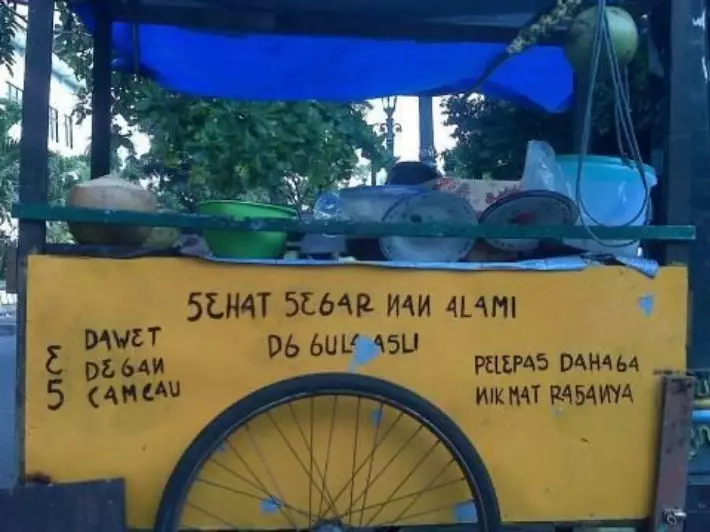 SEHAT SEGAR NAN ALAMI
DG GULA ASLI
ES
DAWET
DEGAN
CAMCAU
PELEPAS DAHAGA
NIKMAT RASANYA